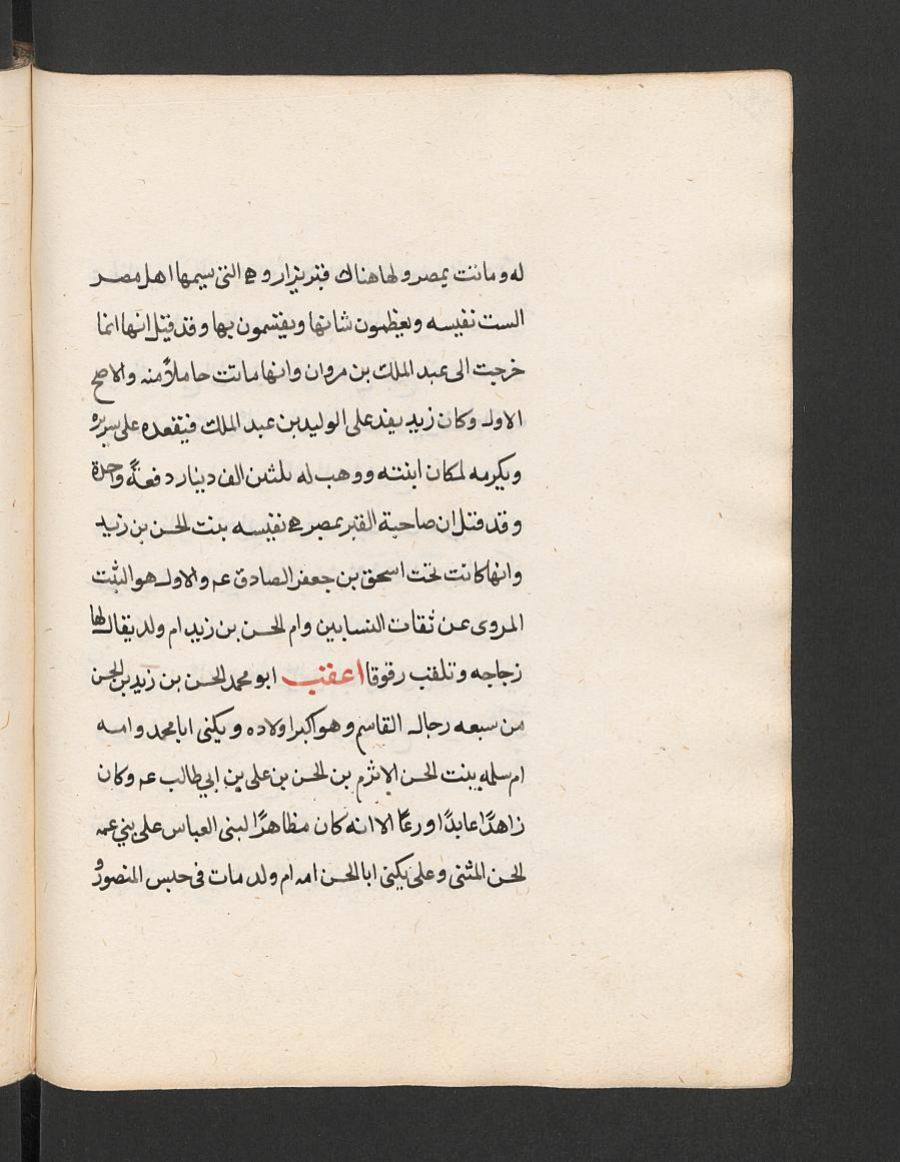 له وماتت بمصر ولها هناك قبر يزار وهي التي يسيمها اهل مصر
الست نفيسه ويعظمون شانها ويقسمون بها وقد قيل انها انما
خرجت الى عبد الملك بن مروان وانها ماتت حاملاً منه والاصح
الاول وكان زيد يفد على الوليد بن عبد الملك فيقعده على سريره
ويكرمه لمكان ابنته ووهب له ثلثين الف دينار دفعةً واحدة
وقد قيل ان صاحبة القبر بمصر هي نفيسه بنت الحسن بن زيد
وانها كانت تحت اسحق بن جعفر الصادق عم والاول هو الثبت
المروى عن ثقات النسابين وام الحسن بن زيد ام ولد يقال لها
زجاجه وتلقب رقوقا اعقب ابو محمد الحسن بن زيد بن الحسن
من سبعه رجال القاسم وهو اكبر اولاده ويكنى ابا محمد وامه
ام سلمه بنت الحسن الاثرم بن الحسن بن على بن ابي طالب عم وكان
زاهدًا عابدًا ورعًا الا انه كان مظاهرًا لبنى العباس على بني عمه
الحسن المثنى وعلى يكنى ابا الحسن امه ام ولد مات فى حبس المنصور و